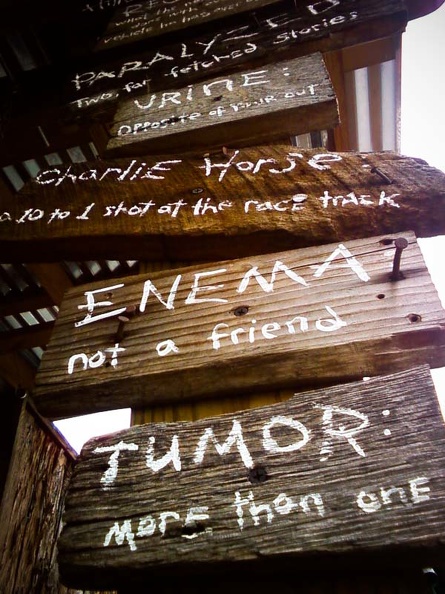 PARALYZED
Two far fetched Stories
URINE:
OPPosite of YOUR OUT
CHarliE HorSe
a 10 to 1 shot at the racE track
ENEMA
not a friend
TUMOR:
MorE than onE